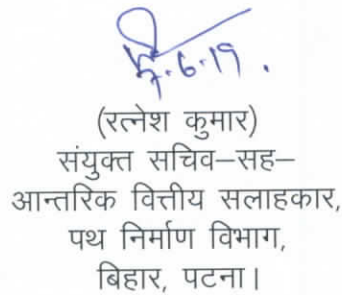 (रत्नेश कुमार)
संयुक्त सचिव–सह–
आन्तरिक वित्तीय सलाहकार,
पथ निर्माण विभाग,
बिहार, पटना।